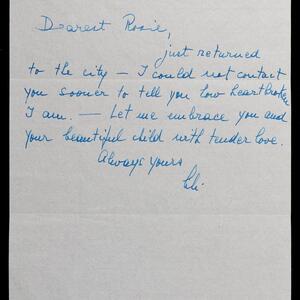 Dearest Rosie,
just returned
to the city — I could not contact
you sooner to tell you how heartbroken
I am. — Let me embrace you and
your beautiful child with tender love.
Always yours